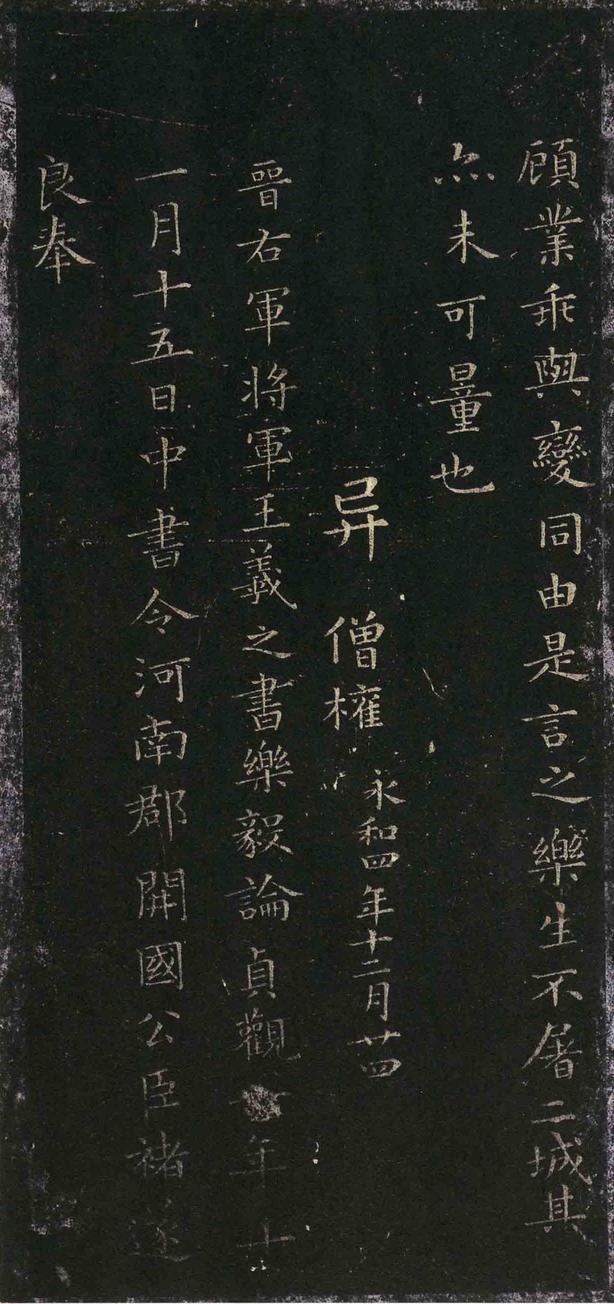 顧業乖與變同由是言之樂生不屠二城其
亦未可量也
异 僧權 永和四年十二月廿四
晉右軍將軍王羲之書樂毅論貞觀 年十
一月十五日中書令河南郡開國公臣褚遂
良奉